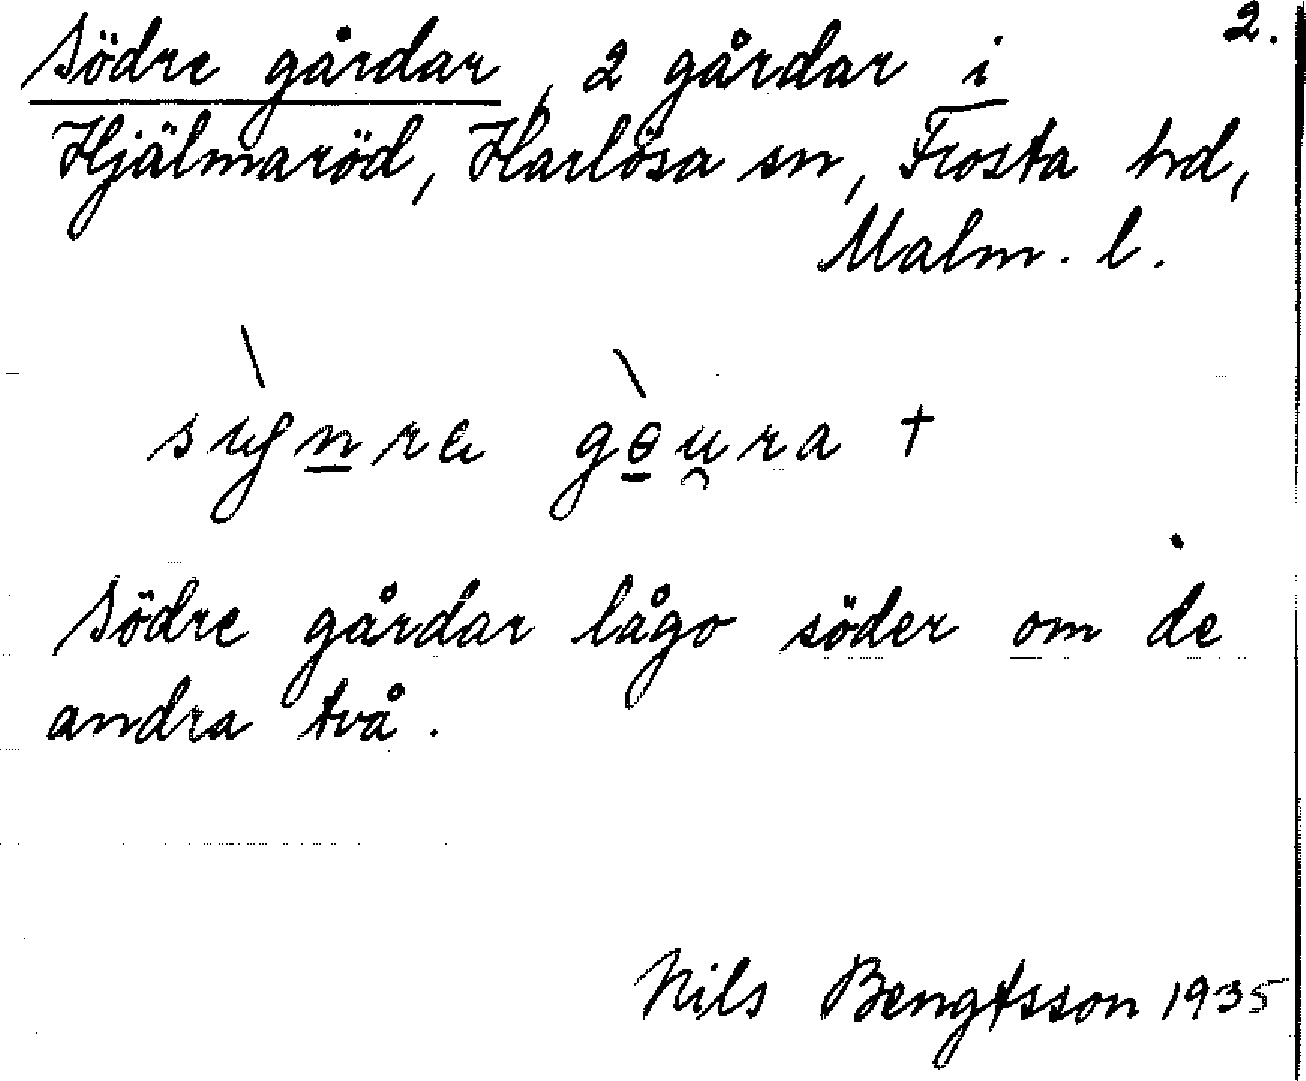 2.
Södre gårdar, 2 gårdar i
Hjälmaröd, Harlösa sn, Frosta hd,
Malm. l.
Södre gårdar lågo söder om de
andra två.
Nils Bengtsson 1935